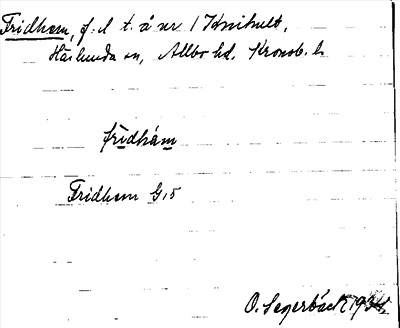 Fridhem, f.d t. å nr 1 Knihult,
Härlunda sn, Allbo hd. Kronob. l.
frìdhǻm
Fridhem G 15
O. Segerbäck 1934